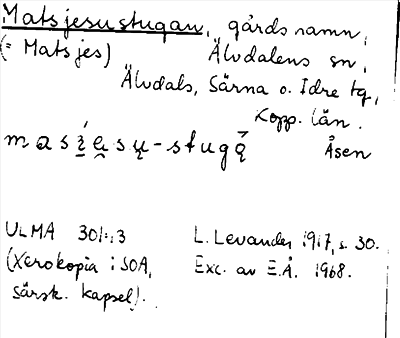 Mats jesustugan, gårdsnamn,
(= Mats jes) Älvdalens sn,
Älvdals, Särna o. Idre tg,
Kopp. län.
Åsen
ULMA 301:13 L. Levander 1917, s. 30.
(Xerokopia i SOA, Exc. av E.Å. 1968.
särsk. kapsel).